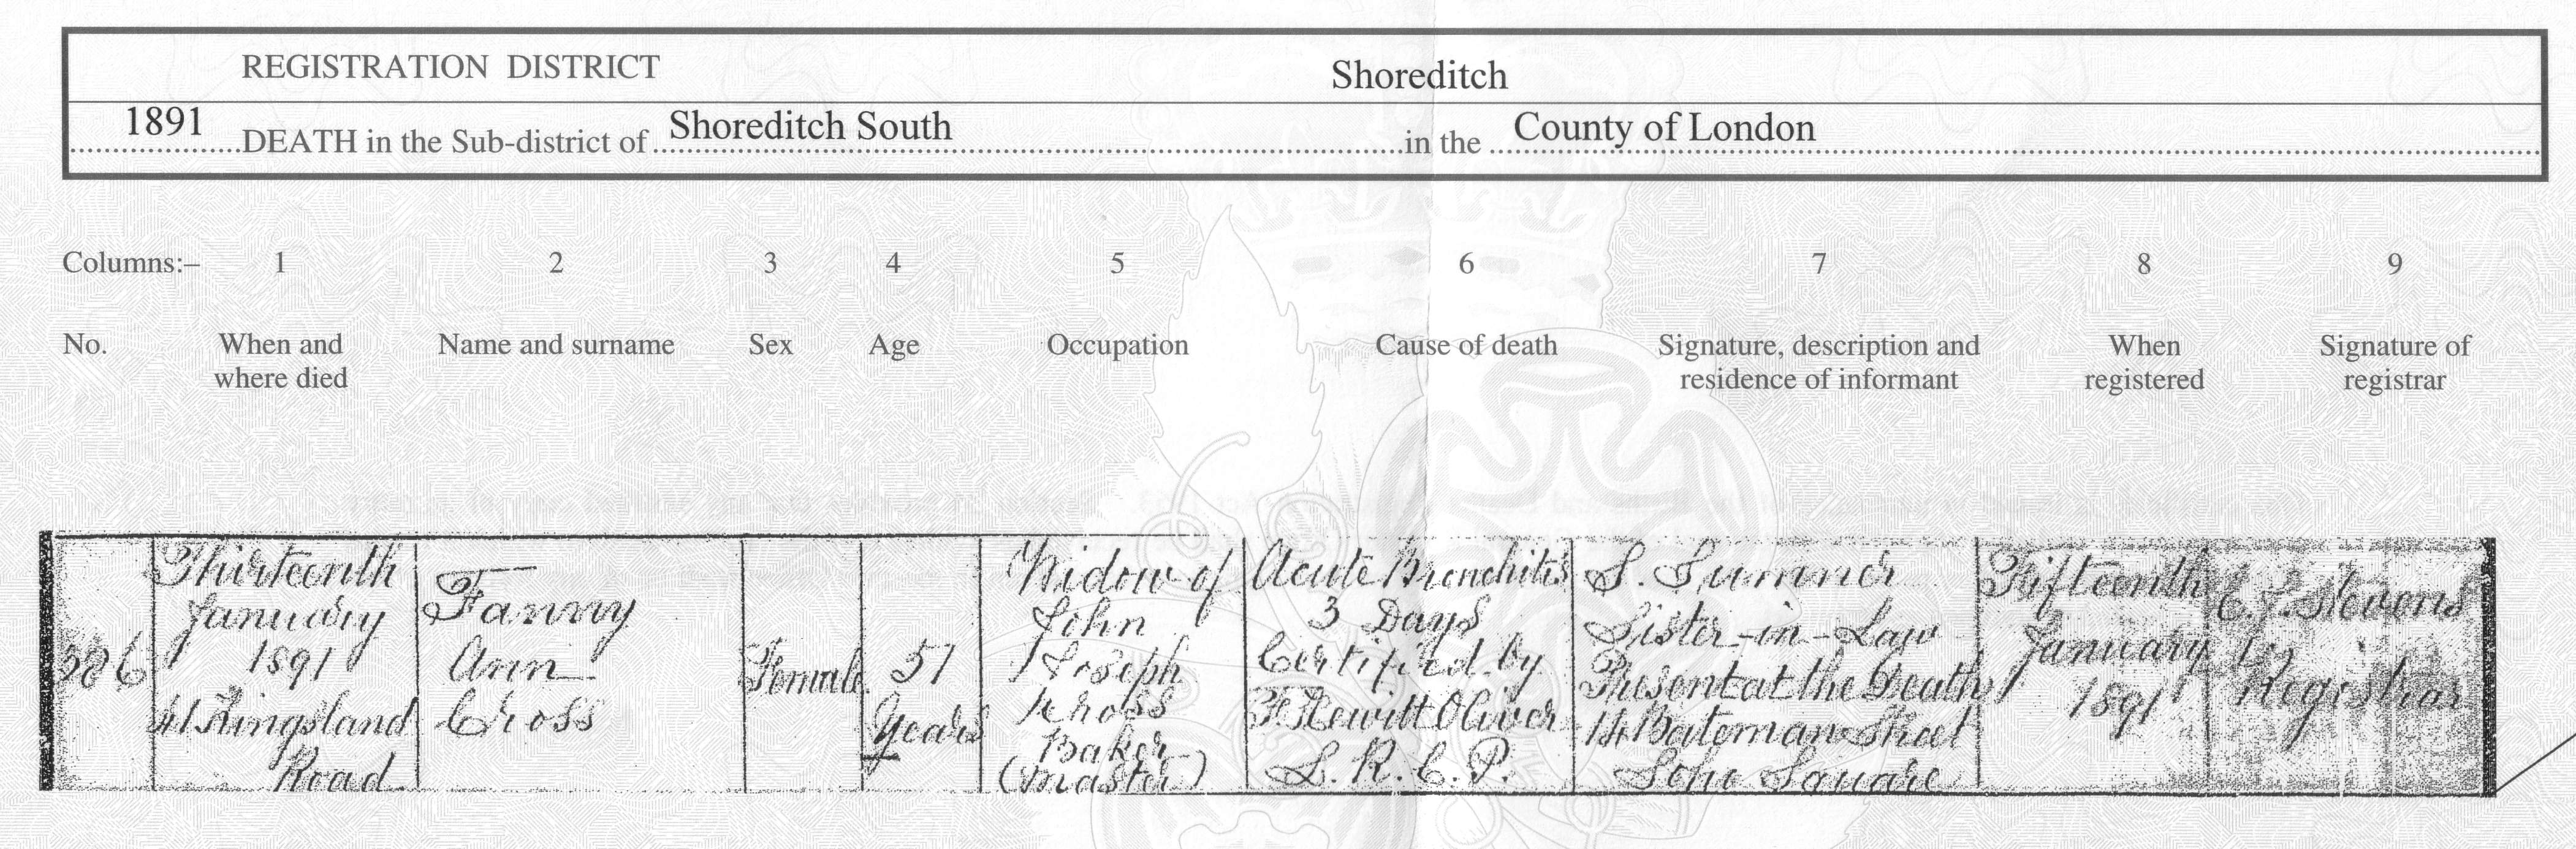 REGISTRATION DISTRICT Shoreditch
1891 DEATH in the Sub-district of Shoreditch South in the County of London
Columns:– 1 2 3 4 5 6 7 8 9
No. When and where died Name and surname Sex Age Occupation Cause of death Signature, description and residence of informant When registered Signature of registrar
286
Thirteenth
January
1891
41 Kingsland
Road
Fanny
Ann
Cross
Female
51
Years
Widow of
John
Joseph
Kross
Baker
(Master)
Acute Bronchitis
3 Days
Certified by
F. Hewitt Oliver
L. R. C. P.
S. Sumner
Sister-in-Law
Present at the Death
14 Bateman Street
Soho Square
Fifteenth
January
1891
Stevens
Registrar